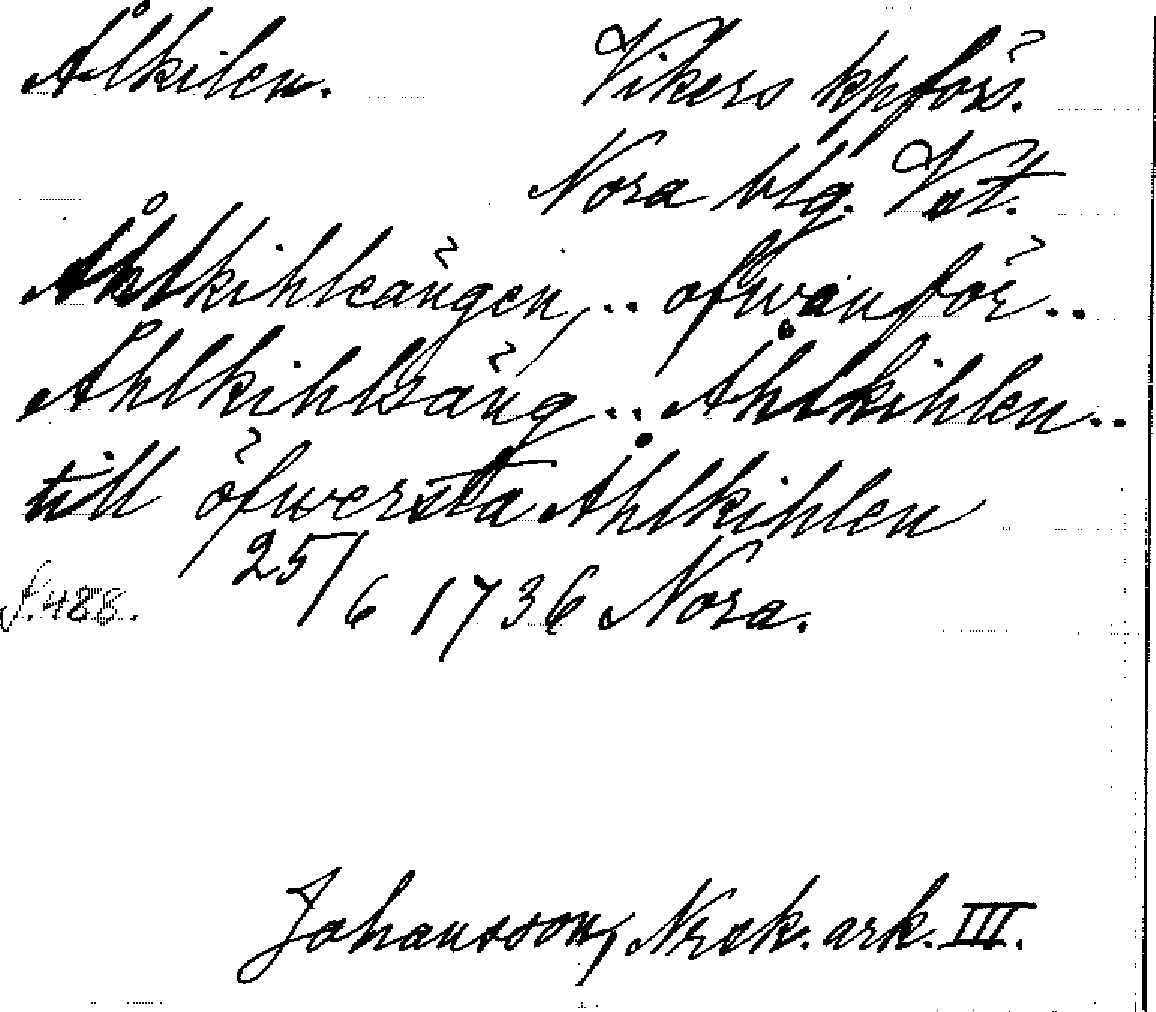 Ålkilen. Vikers kpförs.
Nora blg. Vst.
Åhlkihleängen, .. ofwanför ..
Åhlkihlsäng .. Åhlkihlen ..
till öfwersta Åhlkihlen
25/6 1736 Nora.
S. 488.
Johansson, Nrck. ark. III.